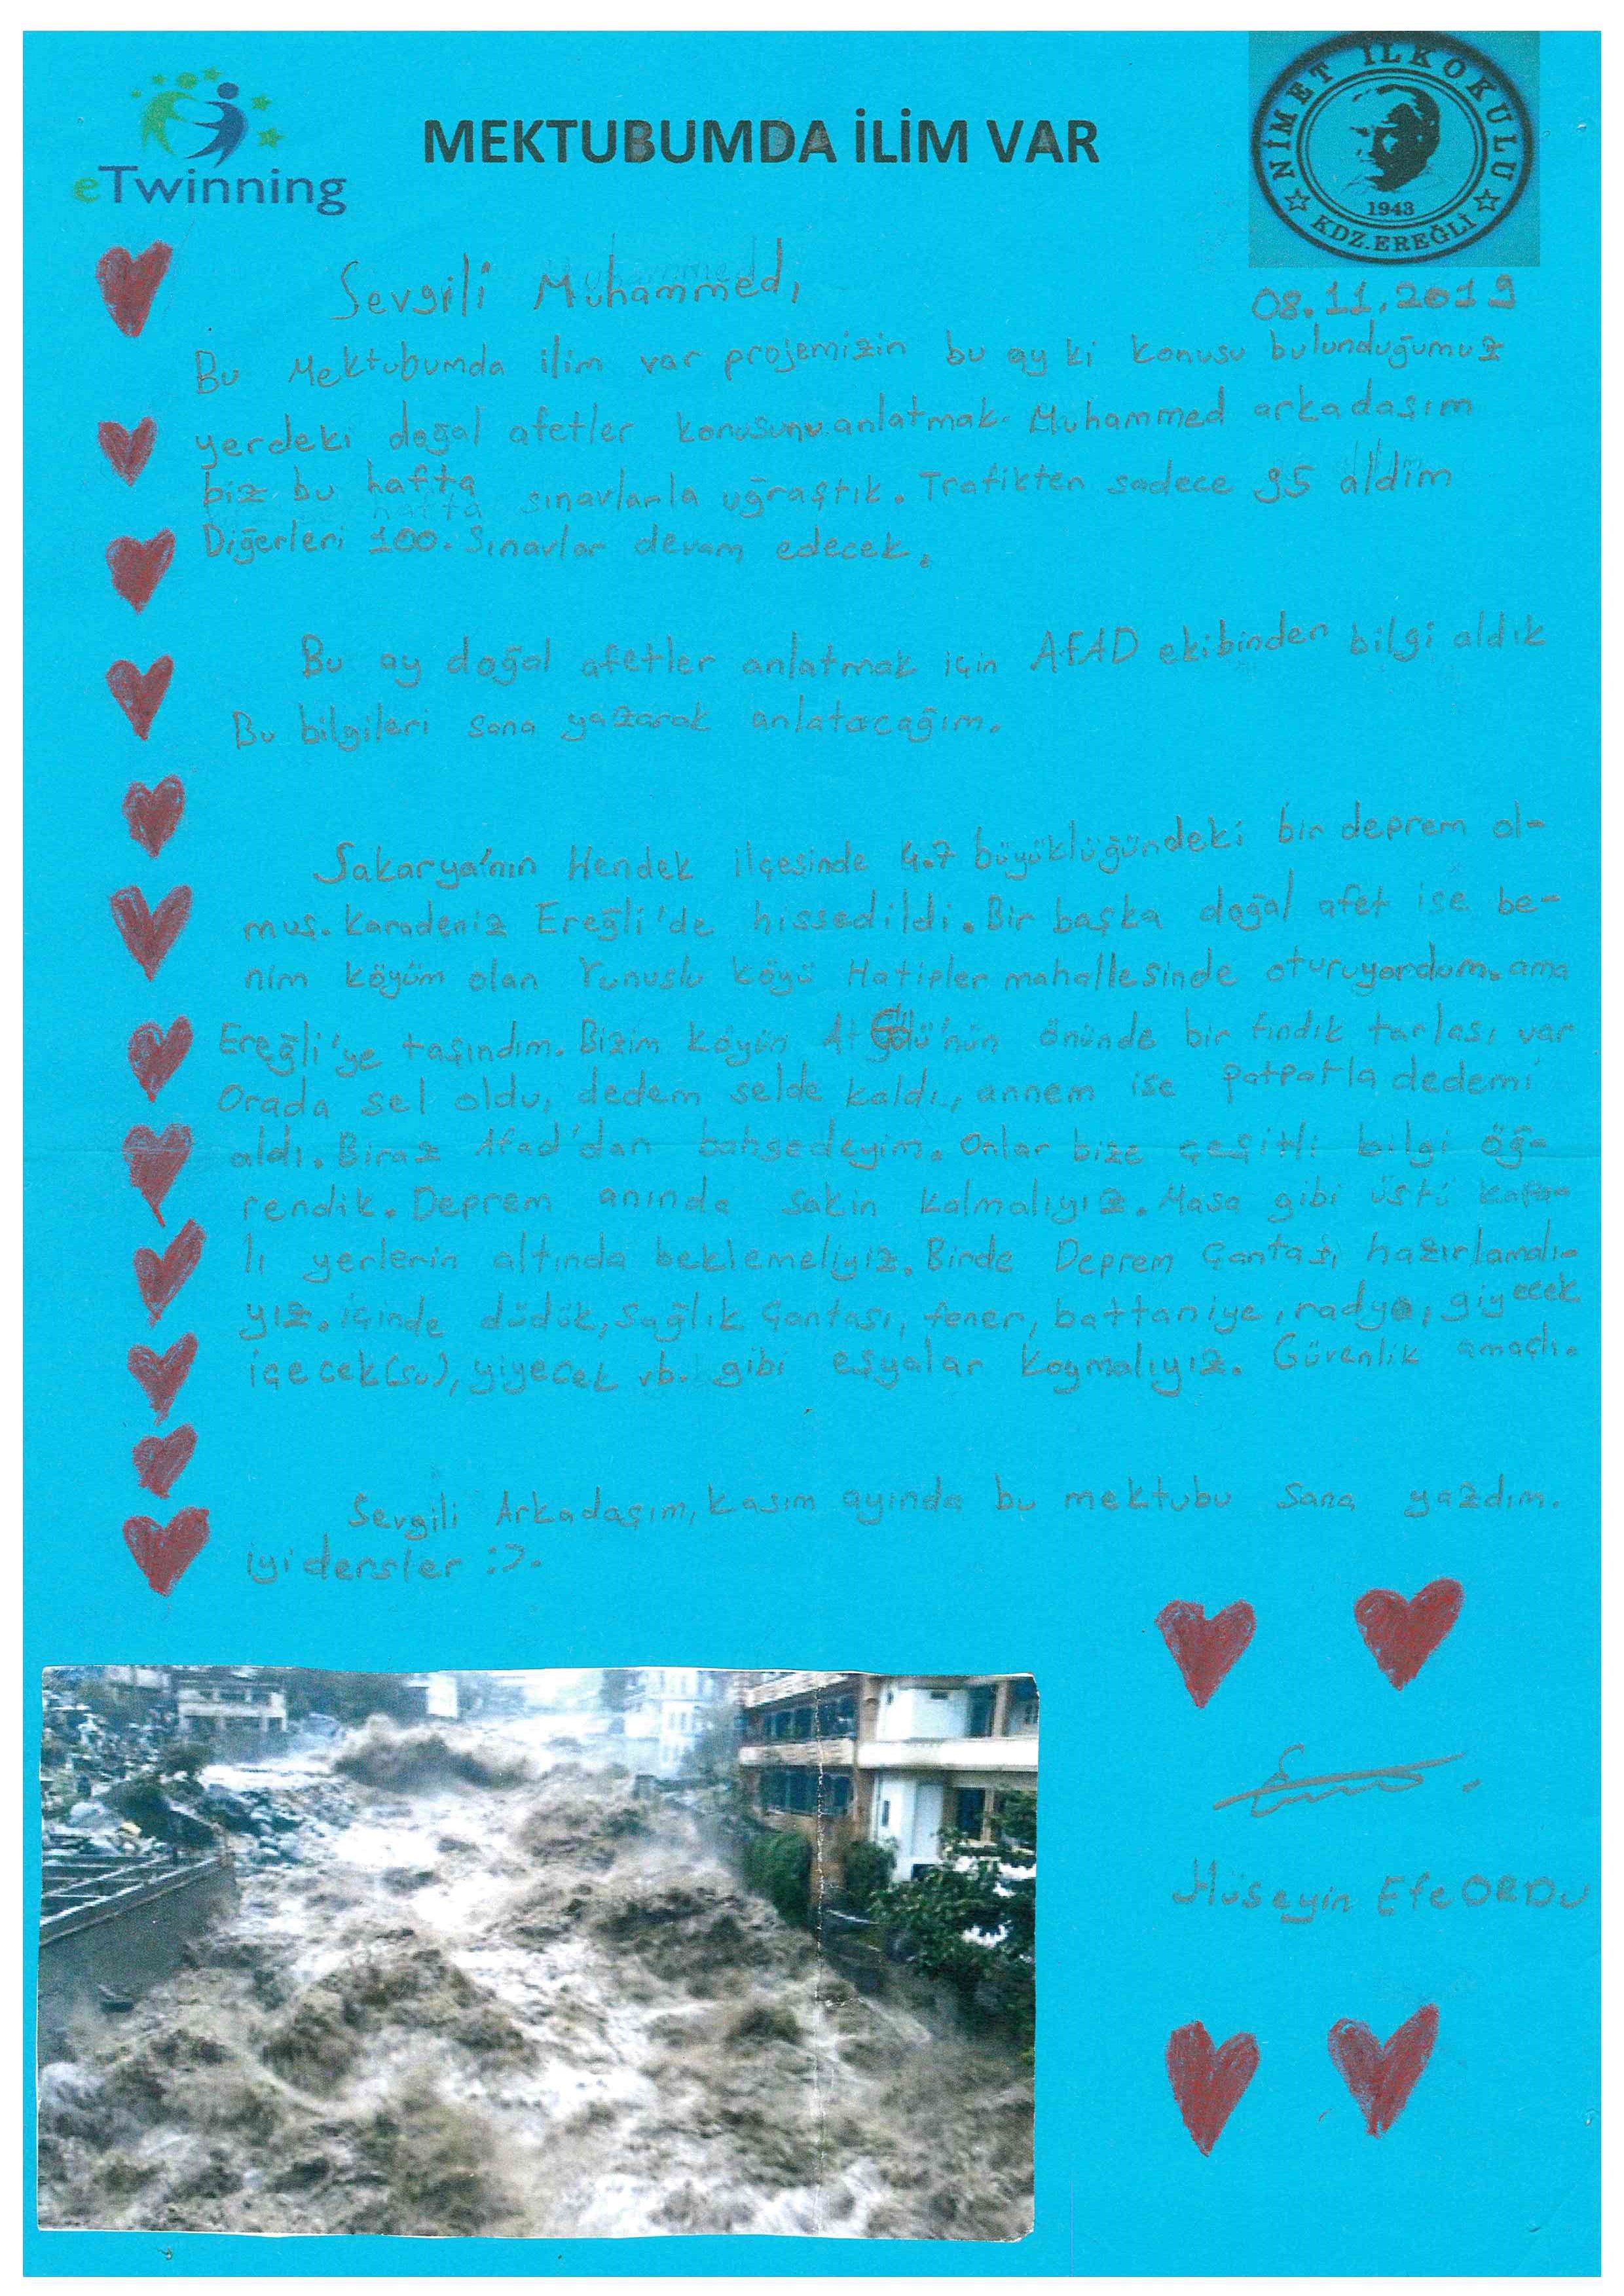 eTwinning
MEKTUBUMDA İLİM VAR
NİMET İLKOKULU
1943
KDZ.EREĞLİ
Sevgili Muhammed,
08.11.2019
Bu Mektubumda ilim var projemizin bu ay ki konusu bulunduğumuz
yerdeki doğal afetler konusunu anlatmak. Muhammed arkadaşım
biz bu hafta sınavlarla uğraştık. Trafikten sadece 95 aldim
Diğerleri 100. Sınavlar devam edecek.
Bu ay doğal afetler anlatmak için AFAD ekibinden bilgi aldık
Bu bilgileri sana yazarak anlatacağım.
Sakarya'nın Hendek ilçesinde 4.7 büyüklüğündeki bir deprem ol-
muş. Karadeniz Ereğli'de hissedildi. Bir başka doğal afet ise be-
nim köyüm olan Yunuslu köyü Hatipler mahallesinde oturuyordum. ama
Ereğli'ye taşındım. Bizim köyün At Gölü'nün önünde bir fındık tarlası var
Orada sel oldu, dedem selde kaldı, annem ise patpatla dedemi
aldı. Biraz Afad'dan bahsedeyim. Onlar bize çeşitli bilgi öğ-
rendik. Deprem anında sakin kalmalıyız. Masa gibi üstü kapa-
lı yerlerin altında beklemeliyiz. Birde Deprem Çantası hazırlamalı-
yız. içinde düdük, Sağlık Çantası, fener, battaniye, radyo, giyecek
içecek(su), yiyecek vb. gibi eşyalar koymalıyız. Güvenlik amaçlı.
Sevgili Arkadaşım, kasım ayında bu mektubu sana yazdım.
iyi dersler :).
Hüseyin Efe ORDU